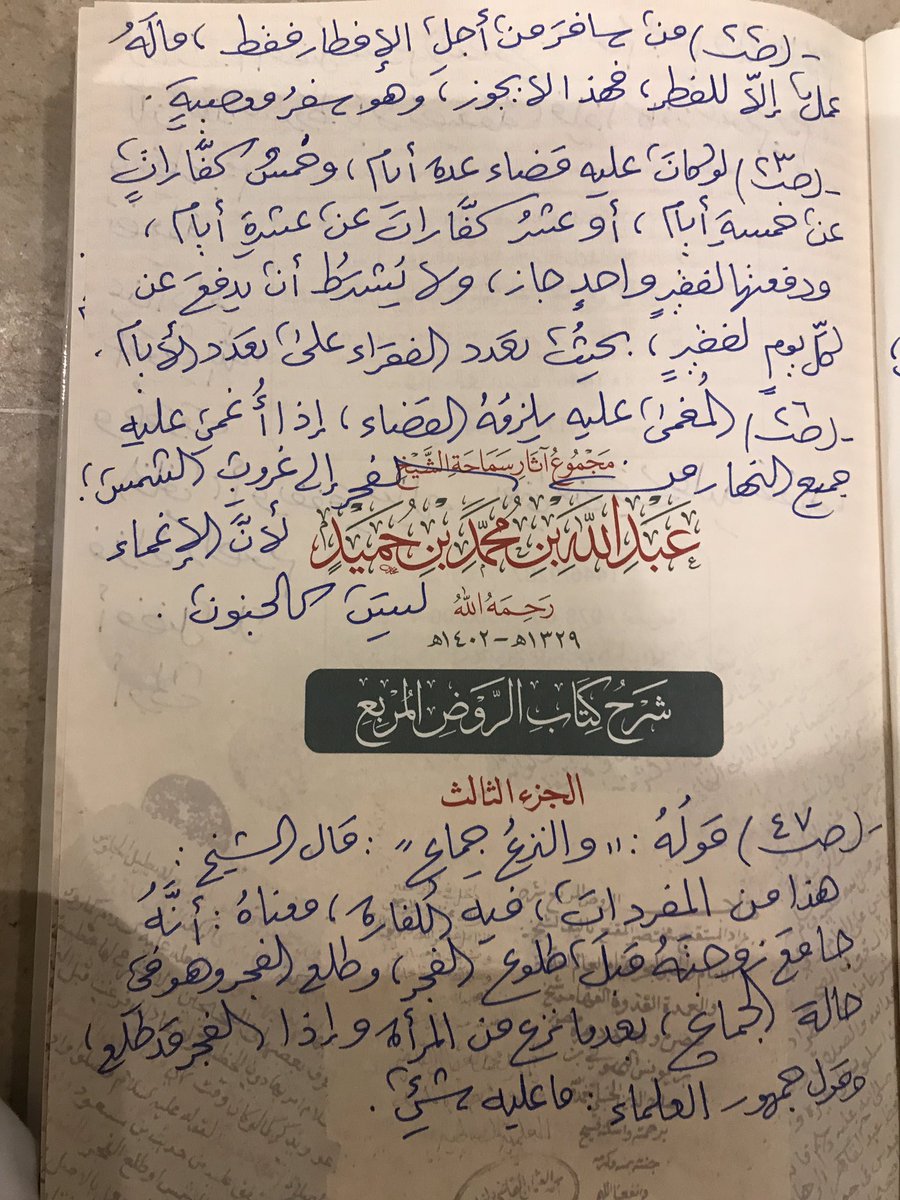 - (ص٢٢) من سافرَ من أجلِ الإفطارِ فقط، مالَهُ
عملٌ إلَّا للفطر؛ فهذا لا يجوز، وهو سفرُ معصيةٍ.
- (ص٢٣) لو كان عليه قضاء عدة أيام، وخمسُ كفَّاراتٍ
عن خمسةِ أيام، أو عشرُ كفَّارات عن عشرةِ أيام،
ودفعها لفقيرٍ واحدٍ جاز، ولا يُشترطُ أن يدفعَ عن
كلّ يومٍ لفقيرٍ، بحيثُ تعدد الفقراء على تعدد الأيام.
- (ص٢٦) المُغمى عليه يلزمُهُ القضاء، إذا أُغمي عليه
جميع النهار من الفجر إلى غروب الشمس؛
مَجْمُوعُ آثَارِ سَمَاحَةِ الشَّيْخِ
عَبْدِ اللهِ بْنِ مُحَمَّدِ بْنِ حُمَيْدٍ
لأنَّ الإغماء
رَحِمَهُ اللهُ
ليس كالجنون.
١٣٢٩هـ - ١٤٠٢هـ
شَرْحُ كِتَابِ الرَّوْضِ المُرْبِعِ
الجزء الثالث
- (ص٤٧) قولُهُ: «والنزعُ جماع»: قال الشيخ:
هذا من المفردات، فيه الكفارة، معناهُ: أنَّهُ
جامعَ زوجتَهُ قبلَ طلوع الفجر، وطلع الفجر وهو في
حالة الجماع، بعدما نزع من المرأة وإذا الفجر قد طلع،
وقول جمهور العلماء: ما عليه شيءٌ.